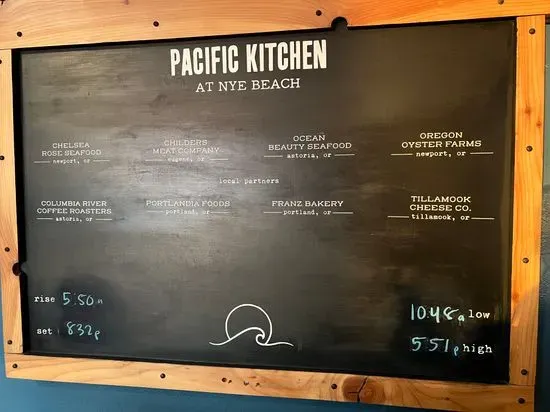 PACIFIC KITCHEN
AT NYE BEACH
CHELSEA
ROSE SEAFOOD
newport, or
CHILDERS
MEAT COMPANY
eugene, or
OCEAN
BEAUTY SEAFOOD
astoria, or
OREGON
OYSTER FARMS
newport, or
local partners
COLUMBIA RIVER
COFFEE ROASTERS
astoria, or
PORTLANDIA FOODS
portland, or
FRANZ BAKERY
portland, or
TILLAMOOK
CHEESE CO.
tillamook, or
rise 5:50a
set 832p
10:48a low
5:51p high